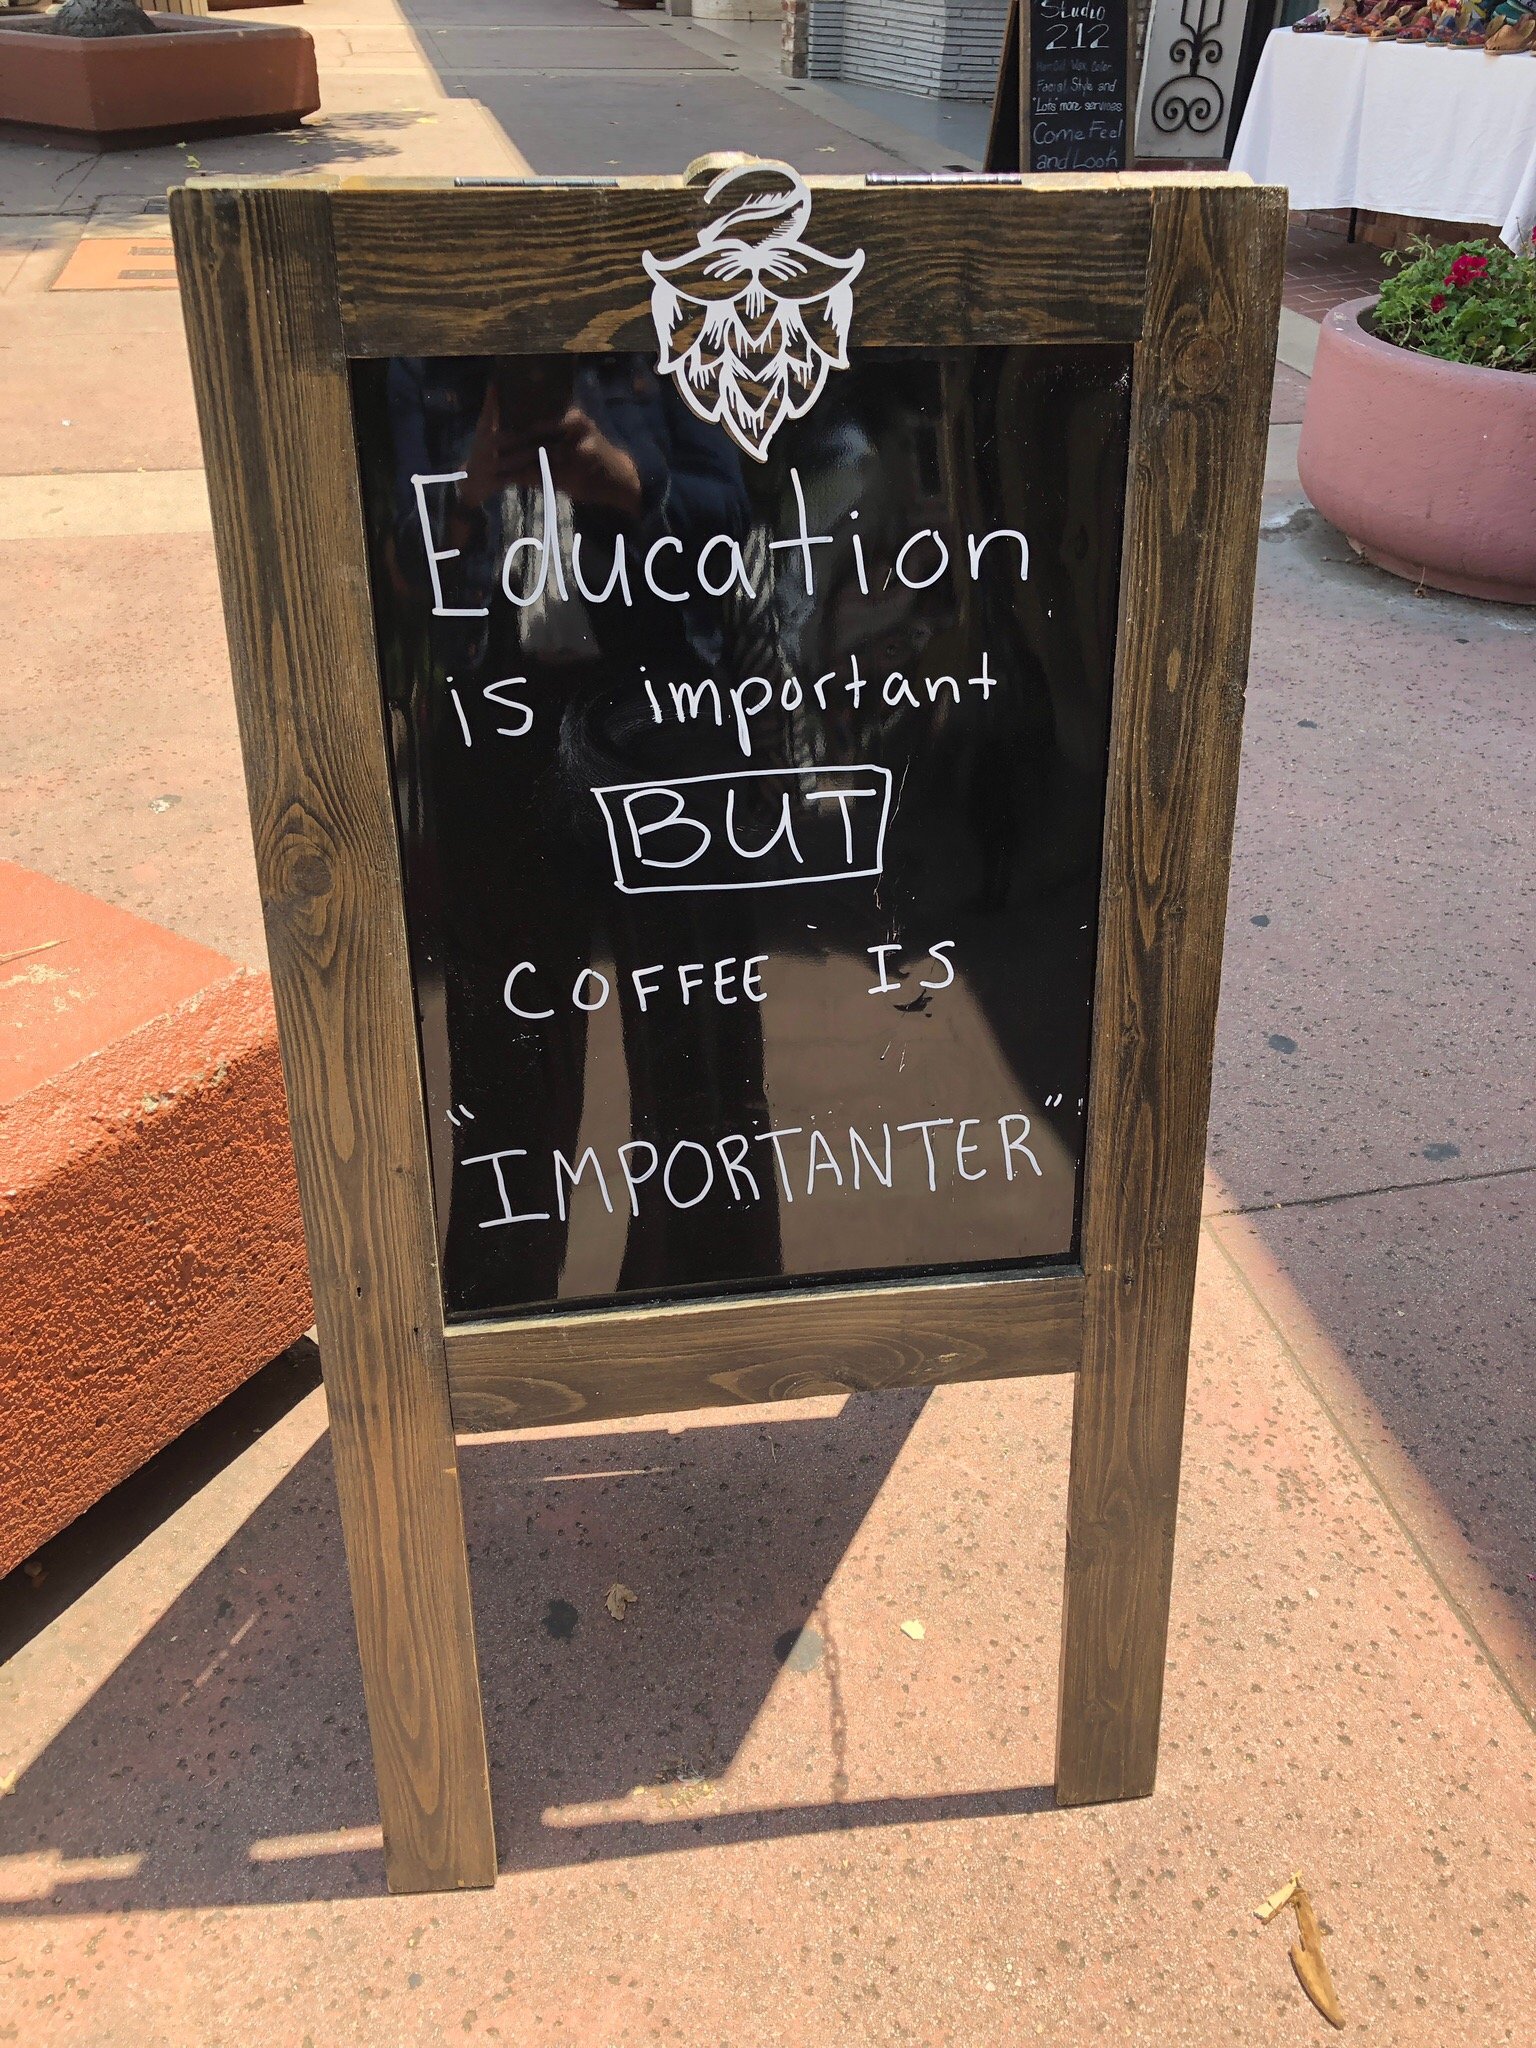 Education
is important
BUT
COFFEE IS
"IMPORTANTER"
Studio
212
Hot Oil, Wax, Color
Facial, Style and
"Lots" more services
Come Feel
and Look